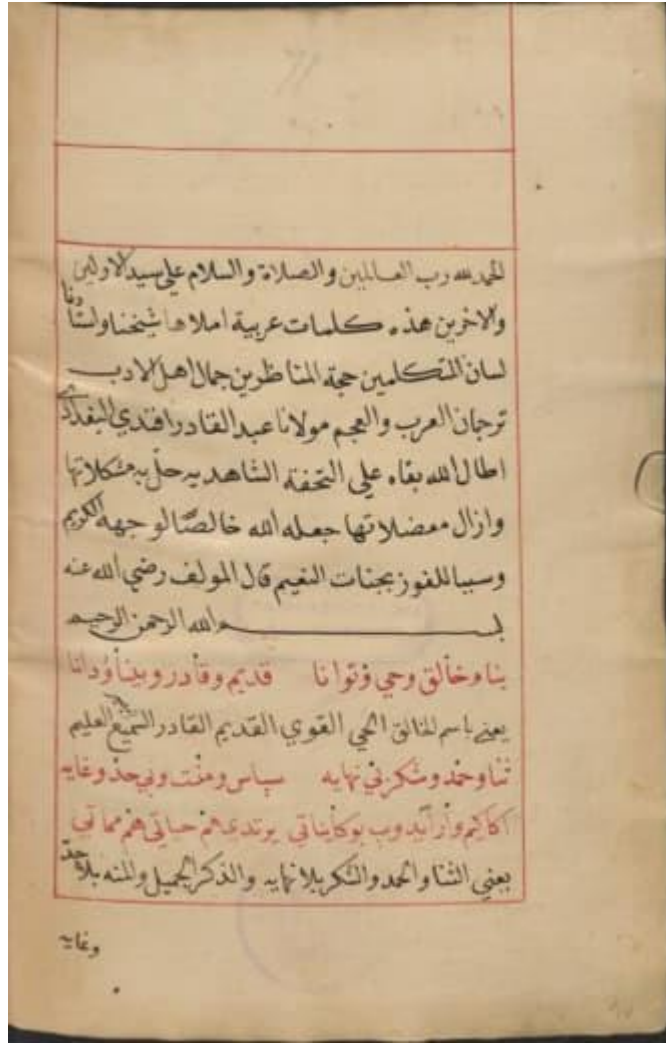 الحمد لله رب العالمين والصلاة والسلام علي سيد الاولين
والاخرين هذه كلمات عربية املاها شيخنا واستادنا
لسان المتكلمين حجة المناظرين جمال اهل الادب
ترجمان العرب والعجم مولانا عبد القادر افندي البغدادي
اطال الله بقاه علي التحفة الشاهديه حل به مشكلاتها
وازال معضلاتها جعله الله خالصًا لوجهه الكريم
وسببا للفوز بجنات النعيم قال المولف رضي الله عنه
بسم الله الرحمن الرحيم
بنام خالق وحي وتوانا قديم وقادر وبينا ودانا
يعني باسم الخالق الحي القوي القديم القادر السميع العليم
ثنا وحمد وشكر بي نهايه سپاس ومنت وبي حد وغايه
حياتي هم مماتي
يعني الثنا والحمد والشكر بلا نهايه والذكر الجميل والمنه بلا حد
وغايه